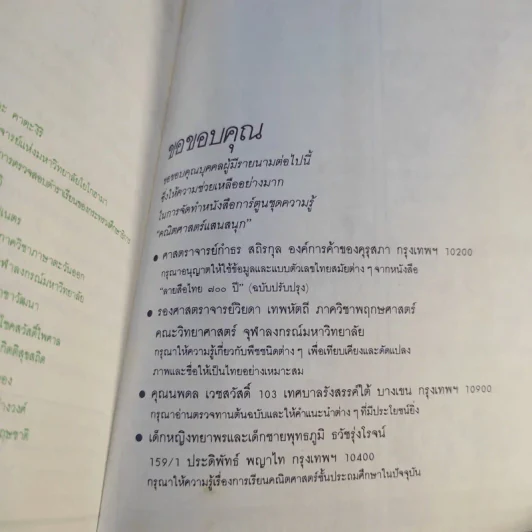 ขอขอบคุณ
ขอขอบคุณบุคคลผู้มีรายนามต่อไปนี้
ซึ่งให้ความช่วยเหลืออย่างมาก
ในการจัดทำหนังสือการ์ตูนชุดความรู้
"คณิตศาสตร์แสนสนุก"
• ศาสตราจารย์กำธร สถิรกุล องค์การค้าของคุรุสภา กรุงเทพฯ 10200
กรุณาอนุญาตให้ใช้ข้อมูลและแบบตัวเลขไทยสมัยต่าง ๆ จากหนังสือ
"ลายสือไทย ๗๐๐ ปี" (ฉบับปรับปรุง)
• รองศาสตราจารย์วิยดา เทพหัตถี ภาควิชาพฤกษศาสตร์
คณะวิทยาศาสตร์ จุฬาลงกรณ์มหาวิทยาลัย
กรุณาให้ความรู้เกี่ยวกับพืชชนิดต่าง ๆ เพื่อเทียบเคียงและดัดแปลง
ภาพและชื่อให้เป็นไทยอย่างเหมาะสม
• คุณนพดล เวชสวัสดิ์ 103 เทศบาลรังสรรค์ใต้ บางเขน กรุงเทพฯ 10900
กรุณาอ่านตรวจทานต้นฉบับและให้คำแนะนำต่าง ๆ ที่มีประโยชน์ยิ่ง
• เด็กหญิงทยาพรและเด็กชายพุทธภูมิ ธวัชรุ่งโรจน์
159/1 ประดิพัทธ์ พญาไท กรุงเทพฯ 10400
กรุณาให้ความรู้เรื่องการเรียนคณิตศาสตร์ชั้นประถมศึกษาในปัจจุบัน
ภาควิชาภาษาตะวันออก
จุฬาลงกรณ์มหาวิทยาลัย